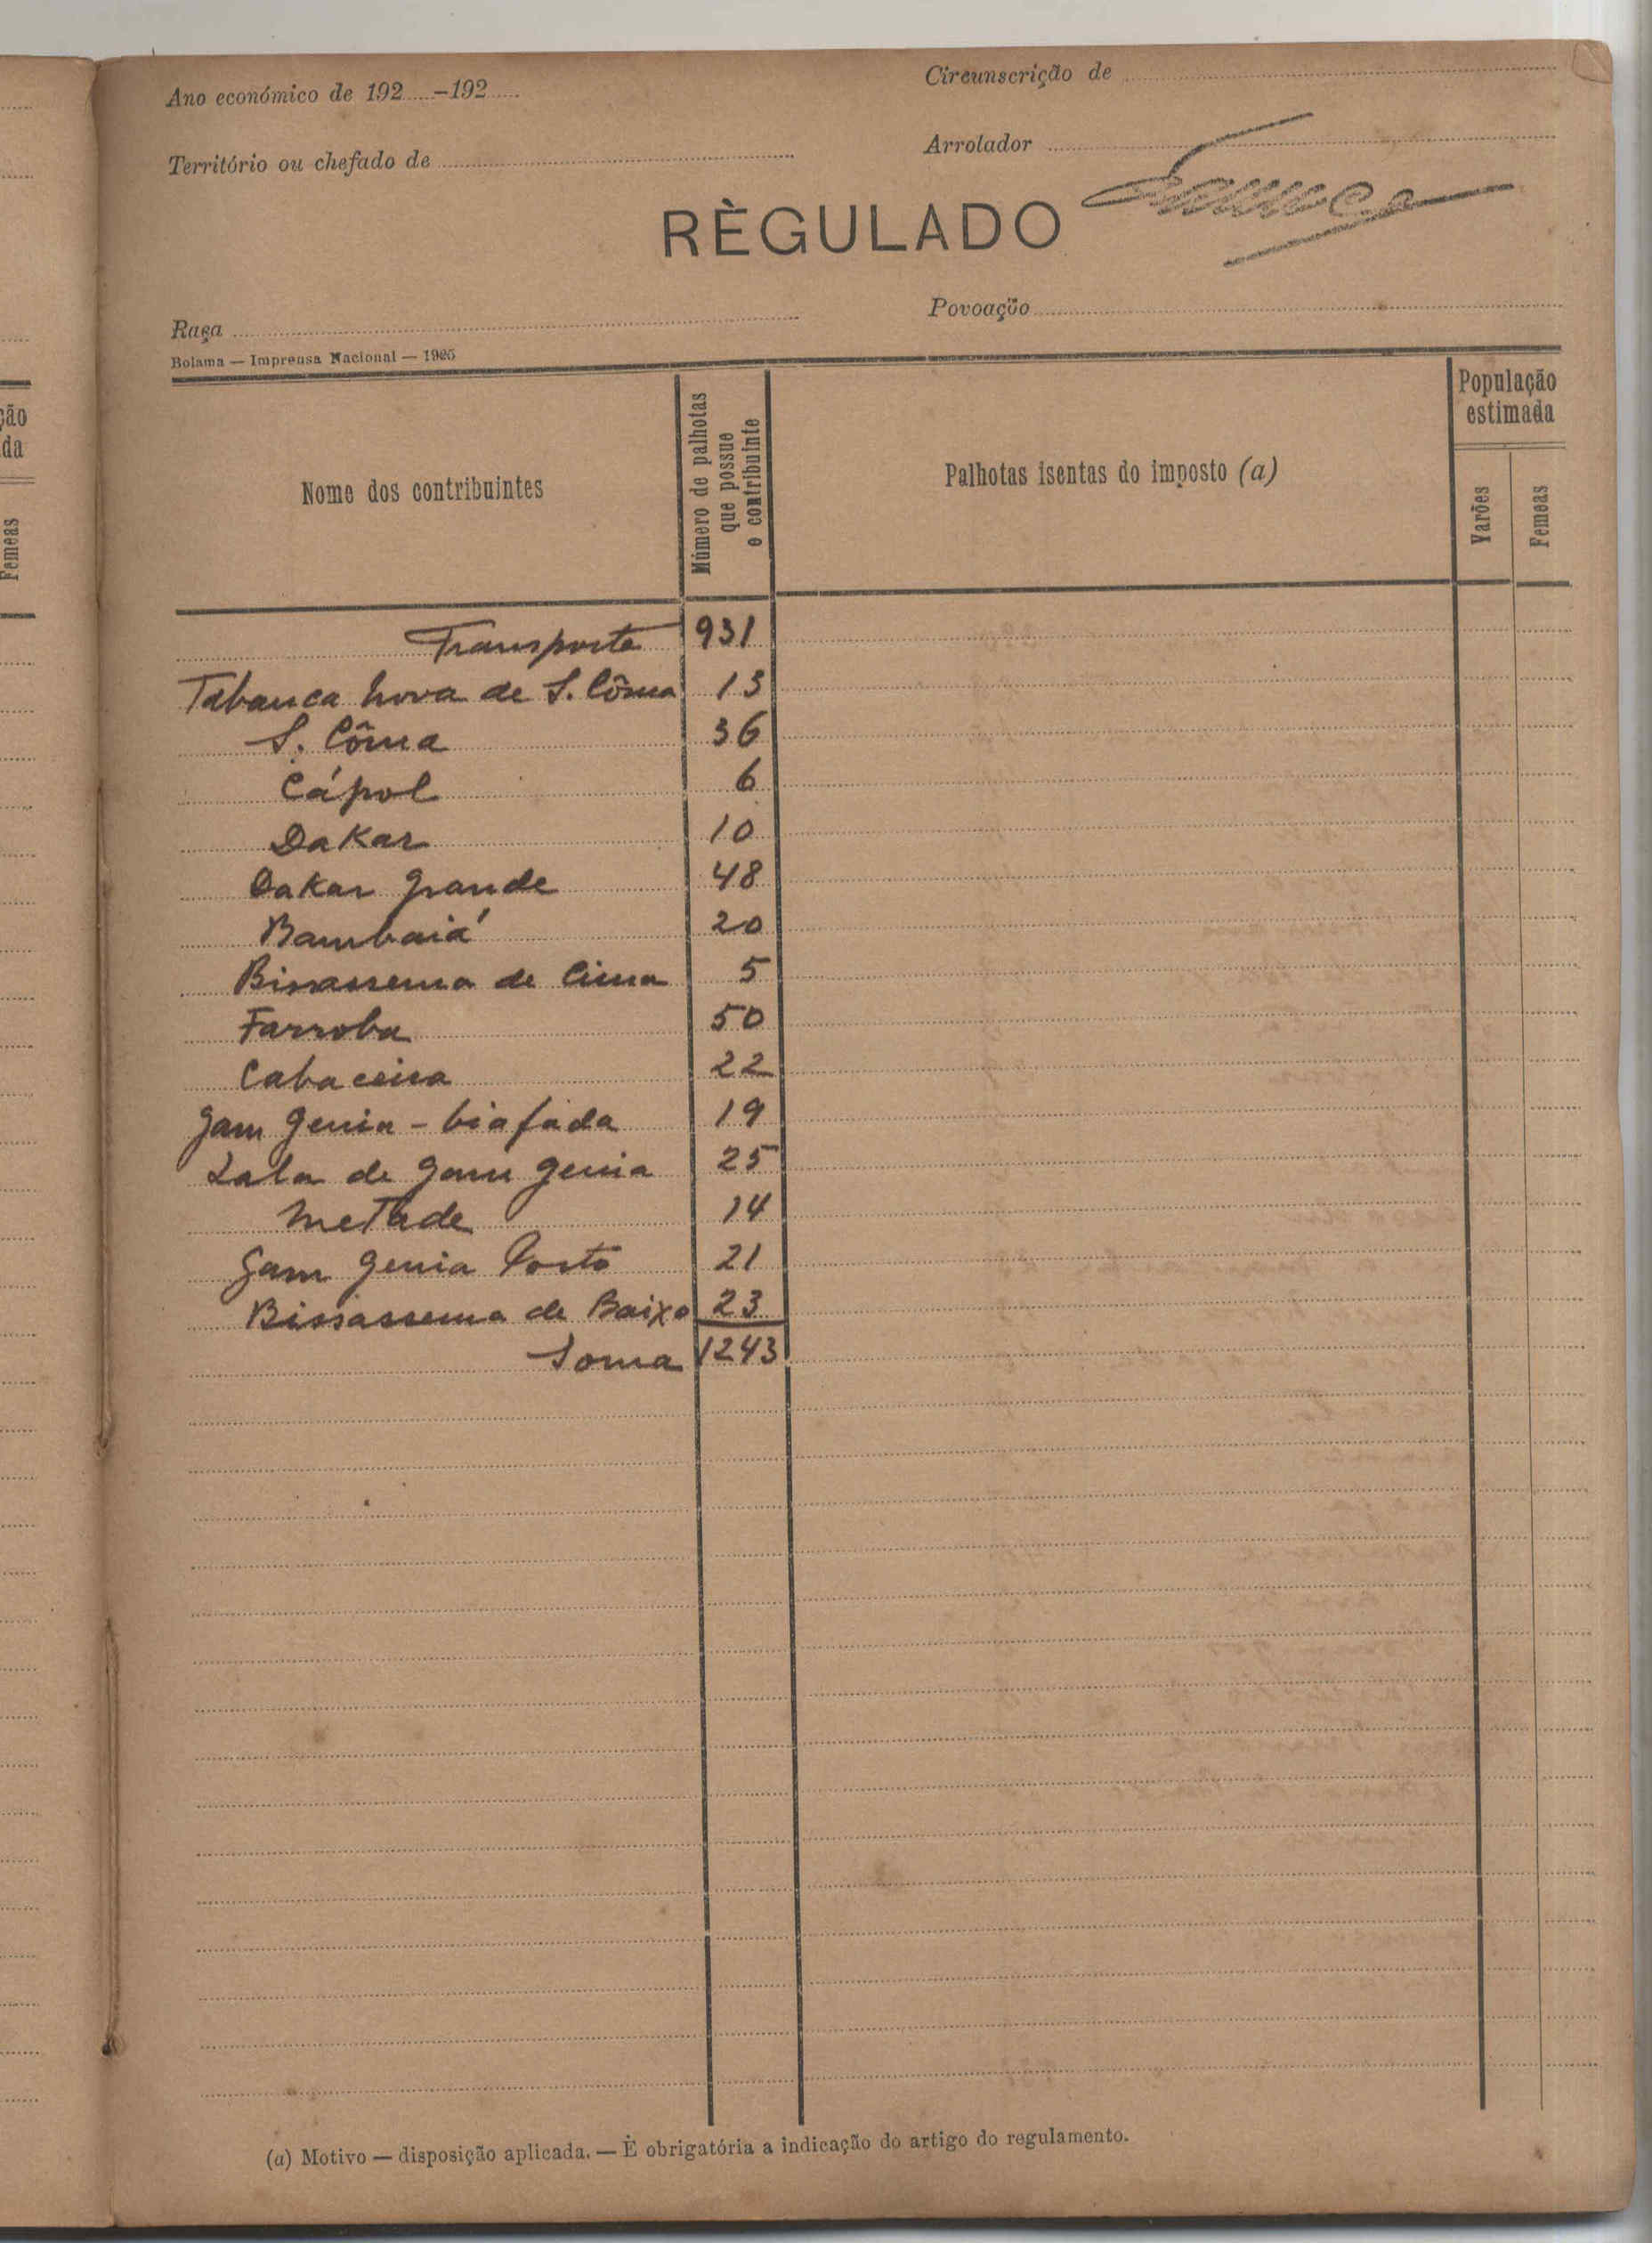 Ano económico de 192.....-192.....
Circunscrição de
Território ou chefado de
Arrolador
RÈGULADO
Raça
Povoação
Bolama — Imprensa Nacional — 1925
Nome dos contribuintes
Número de palhotas que possue o contribuinte
Palhotas isentas do imposto (a)
População estimada
Varões
Femeas
Transporte 931
Tabanca nova de S. Côma 13
S. Côma 36
Cápol 6
Dakar 10
Dakar grande 48
Bambaiá 20
Bissassema de Cima 5
Farroba 50
Cabaceira 22
Gam Genia - biafada 19
Lala de Gam Genia 25
Metade 14
Gam Genia Porto 21
Bissassema de Baixo 23
Soma 1243
(a) Motivo — disposição aplicada. — É obrigatória a indicação do artigo do regulamento.
ção
da
Femeas